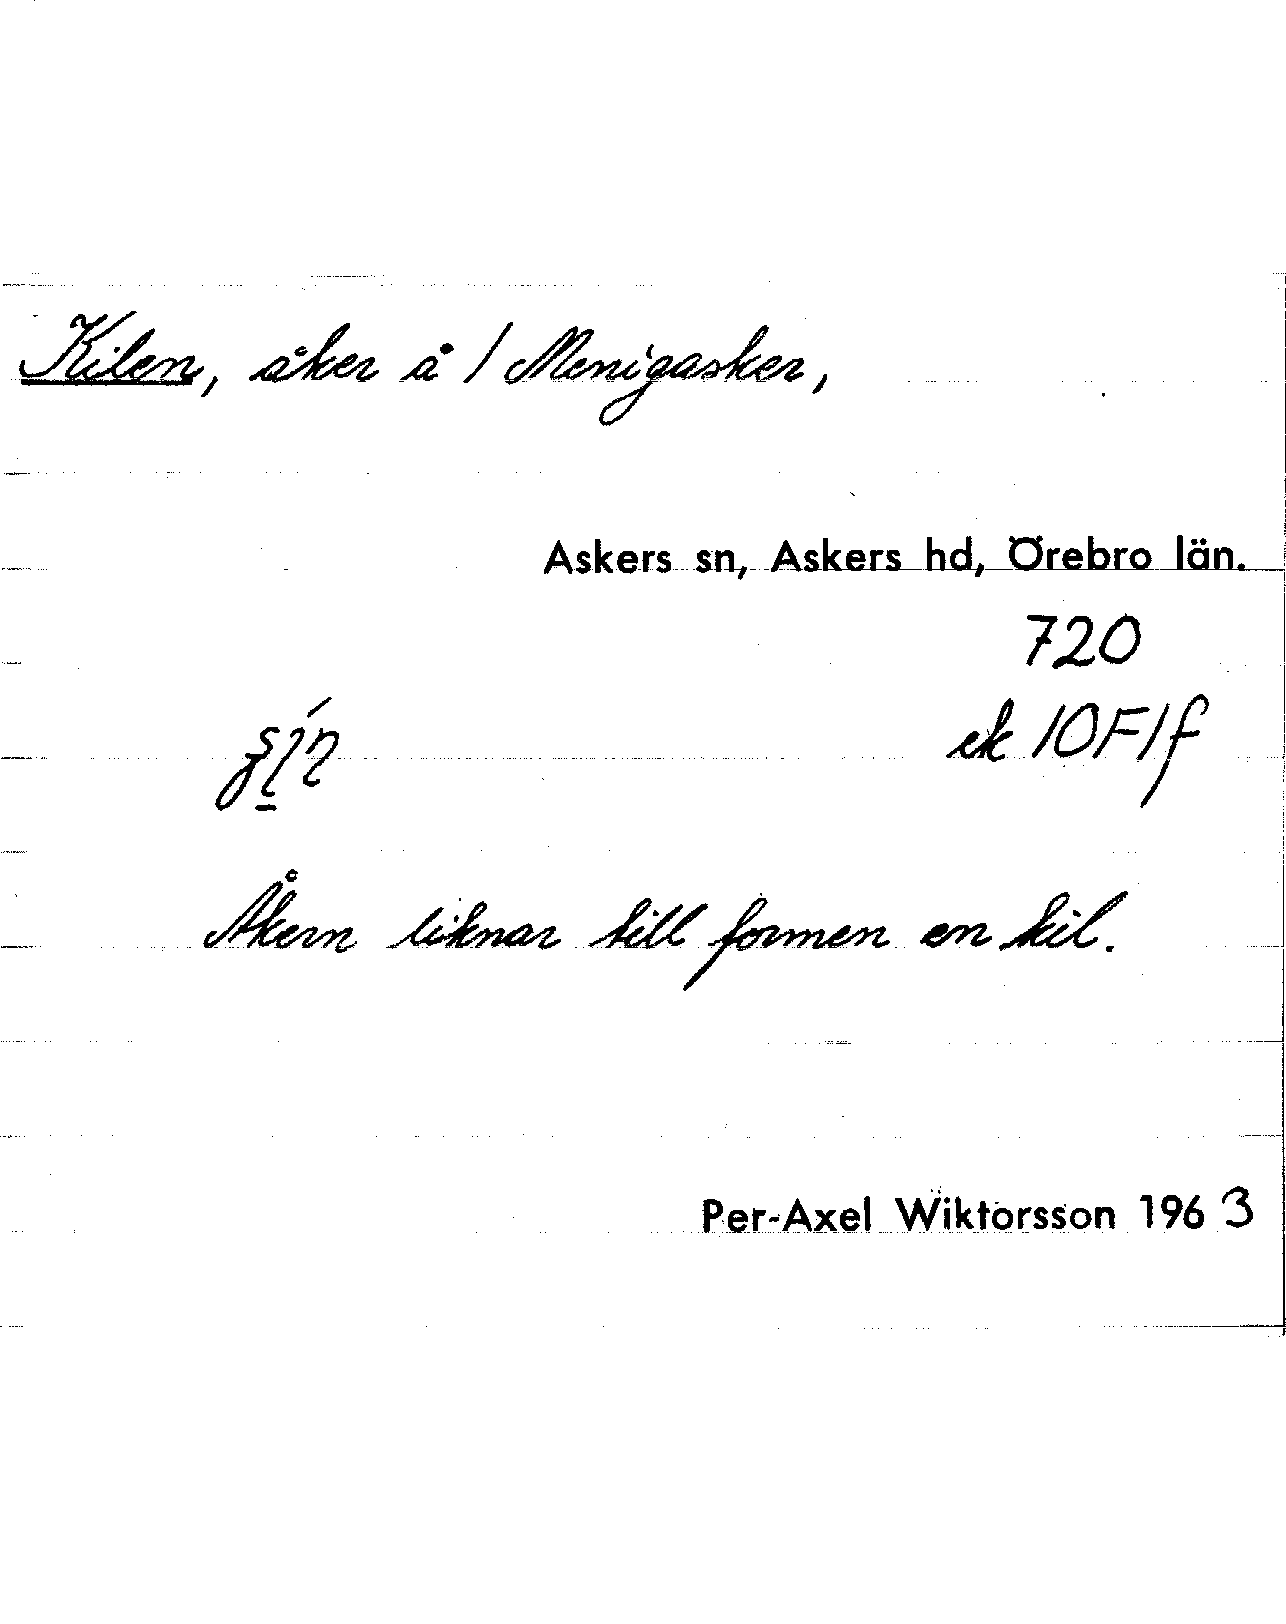 Kilen, åker å / Menigasker,
Askers sn, Askers hd, Örebro län.
720
ek 10F1f
Åkern liknar till formen en kil.
Per-Axel Wiktorsson 1963